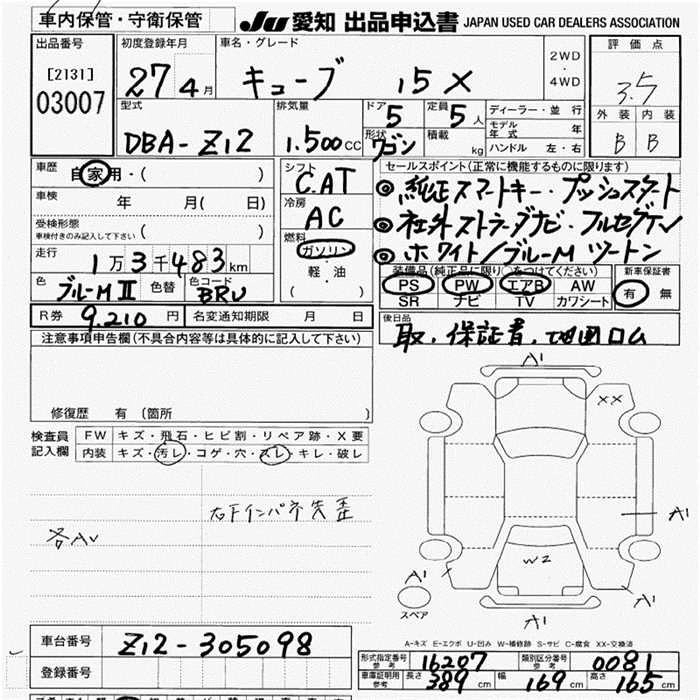 車内保管・守衛保管
JU 愛知 出品申込書 JAPAN USED CAR DEALERS ASSOCIATION
出品番号
[2131]
03007
初度登録年月
27 4 月
車名・グレード
キューブ 15X
2WD
・
4WD
評価点
3.5
外装 内装
B B
型式
DBA-Z12
排気量
1.500 CC
ドア 5
形状 ワゴン
定員 5 人
積載 kg
ディーラー・並行
モデル年式 年
ハンドル 左・右
車歴 自家用・( )
車検 年 月( 日)
受検形態
車検付きのみ記入して下さい ( )
走行 1万3千483km
色 ブルーMⅡ 色替 色コード BRU
シフト
C.AT
冷房
AC
燃料
ガソリン
・
軽・油
( )
セールスポイント(正常に機能するものに限ります)
◎純正スマートキー・プッシュスタート
◎社外ストラーダナビ・フルセグTV
◎ホワイト/ブルーM ツートン
装備品(純正品に限り○をつけてください)
PS PW エアB AW
SR ナビ TV カワシート
新車保証書
有 無
R券 9.210 円 名変通知期限 月 日
後日品
取.保証書.地図ロム
注意事項申告欄(不具合内容等は具体的に記入して下さい)
修復歴 有(箇所 )
検査員記入欄
FW キズ・飛石・ヒビ割・リペア跡・X要
内装 キズ・汚レ・コゲ・穴・スレ・キレ・破レ
右下インパネ先歪
各AU
A1
XX
A1
W2
A1
スペア
A1
A1
A-キズ E-エクボ U-凹み W-補修跡 S-サビ C-腐食 XX-交換済
車台番号 Z12-305098
登録番号
形式指定番号 参考 16207 類別区分番号 参考 0081
車庫証明用 参考 長さ 389 cm 幅 169 cm 高さ 165 cm